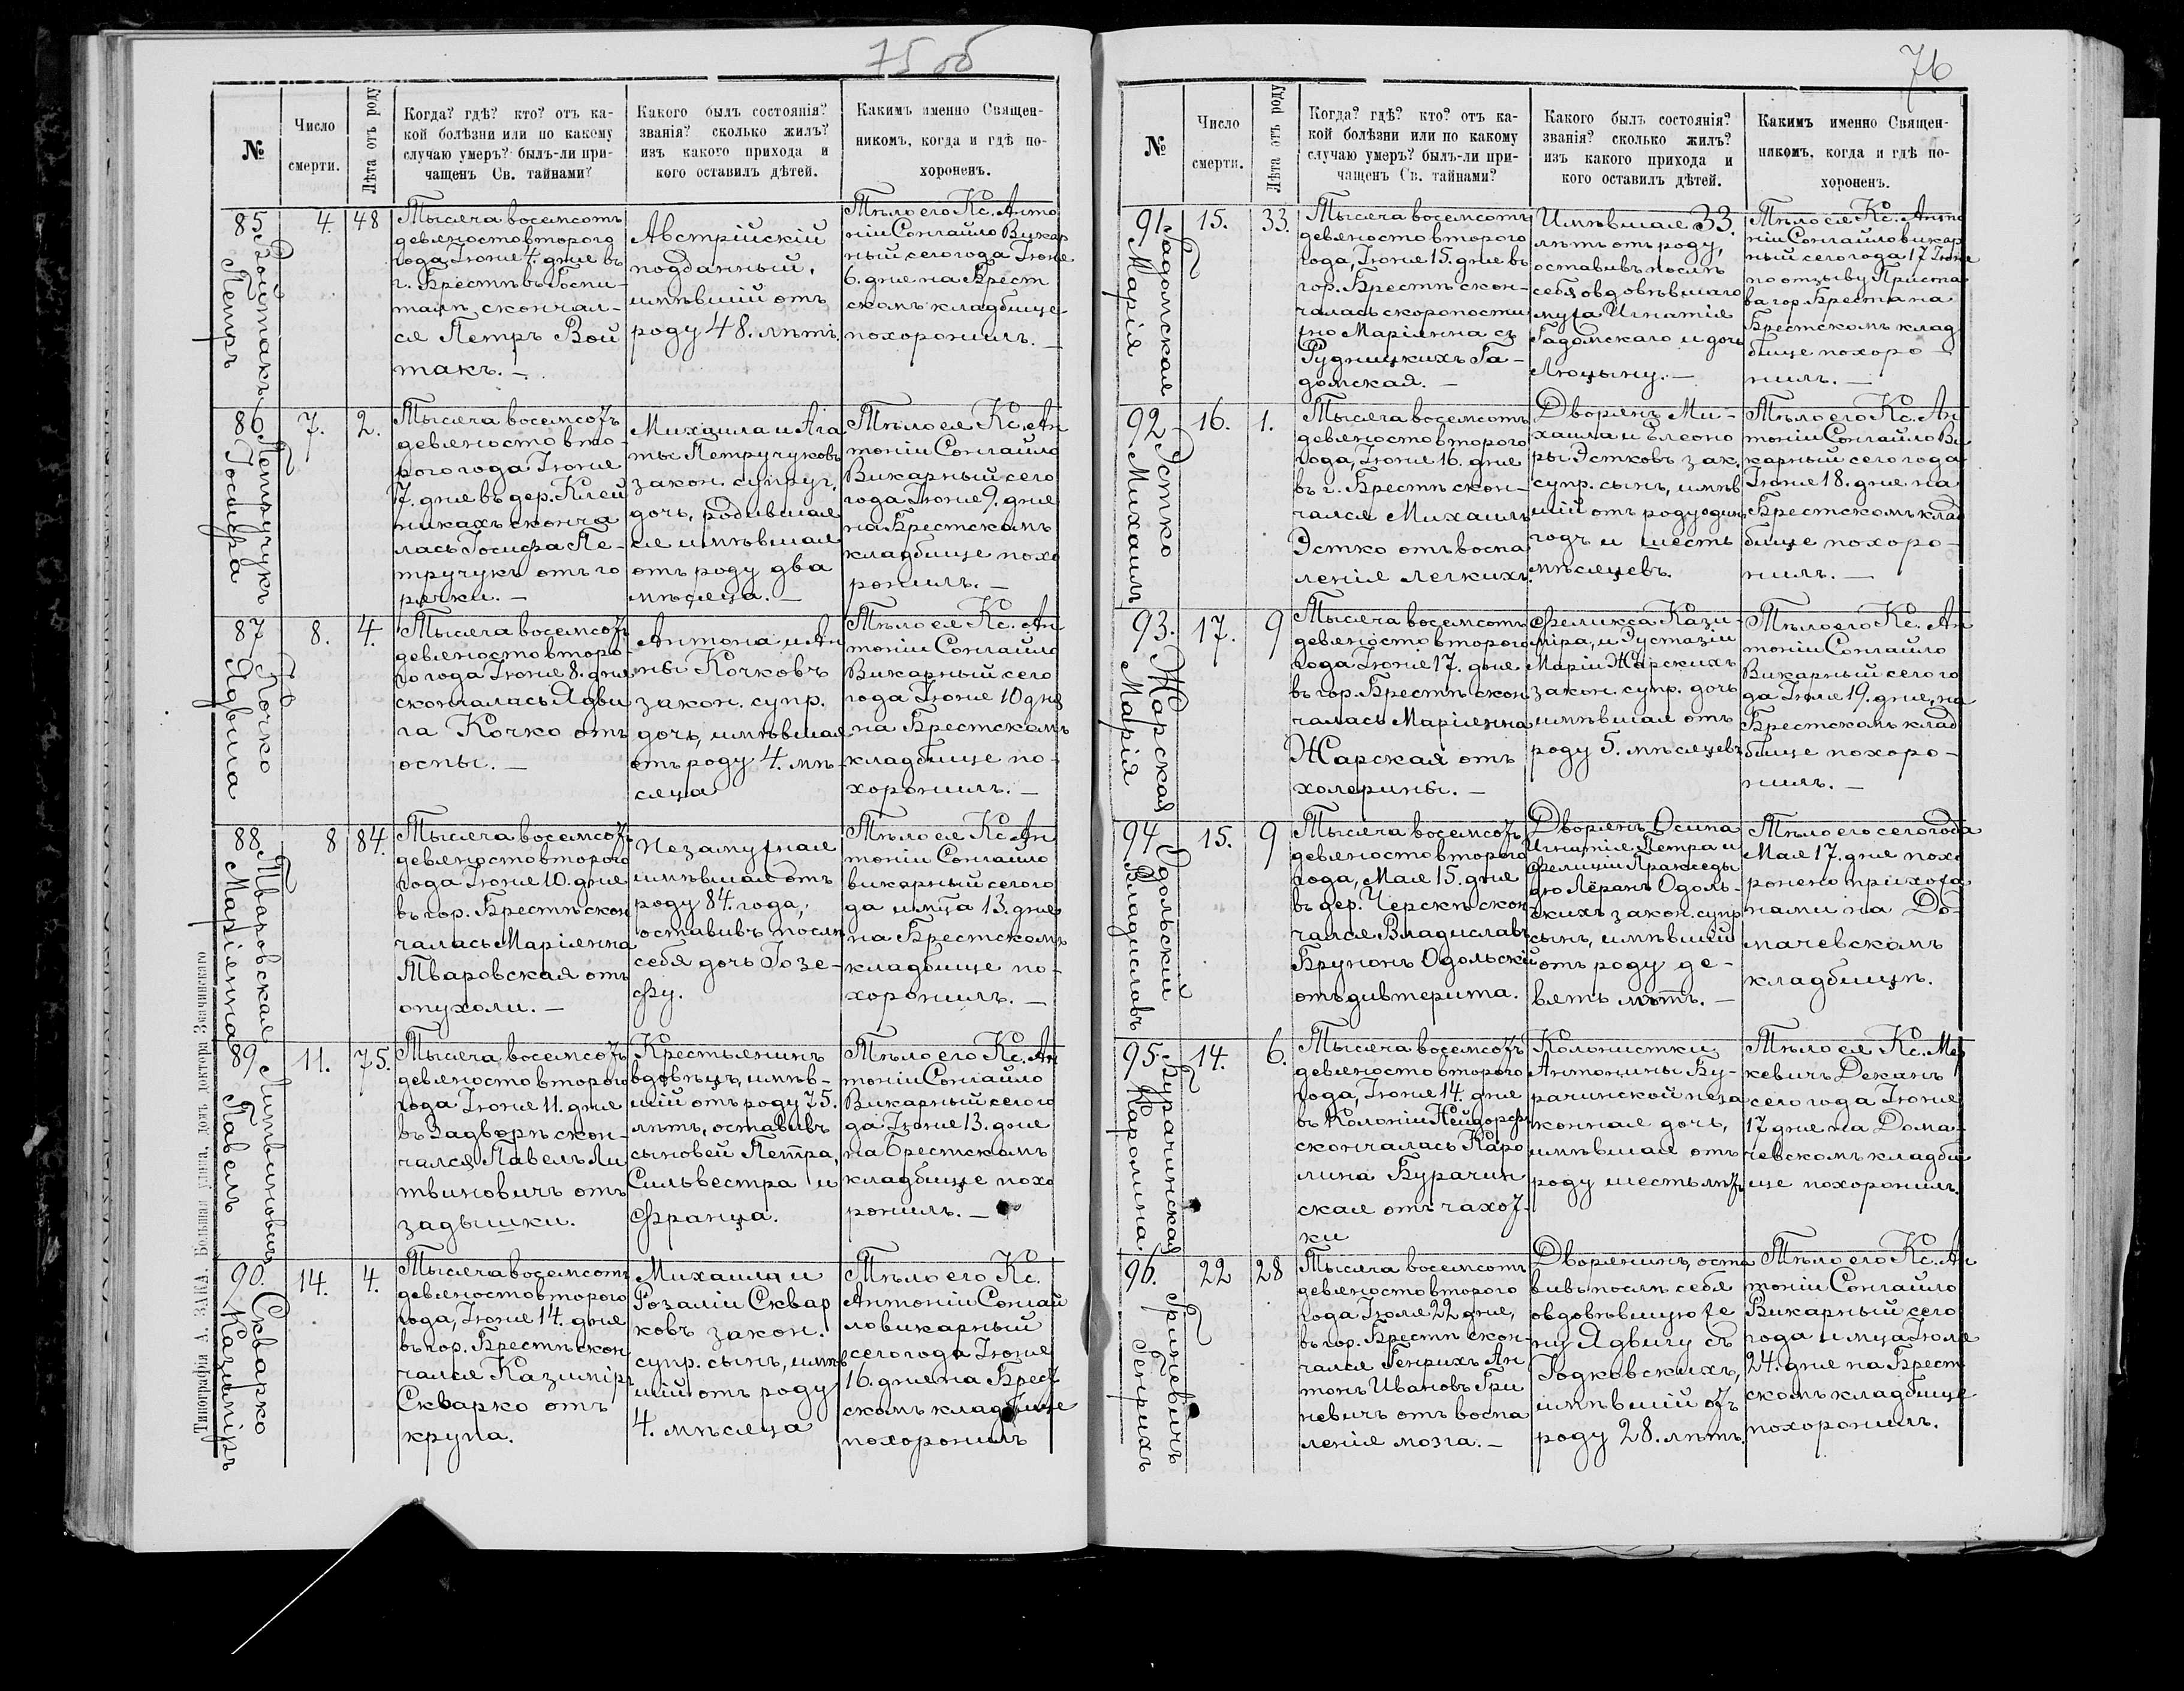 75 об
№
Число
смерти.
Лѣта отъ роду
Когда? гдѣ? кто? отъ ка-
кой болѣзни или по какому
случаю умеръ? былъ-ли при-
чащенъ Св. тайнами?
Какого былъ состоянія?
званія? сколько жилъ?
изъ какого прихода и
кого оставилъ дѣтей.
Какимъ именно Священ-
никомъ, когда и гдѣ по-
хороненъ.
85
Войтакъ
Петръ
4.
48
Тысяча восемсотъ
девяносто второго
года, Іюня 4. дня въ
г. Брестѣ въ Госпи-
талѣ скончал-
ся Петръ Вой
такъ. —
Австрійскій
подданный,
имѣвшій отъ
роду 48. лѣтъ.
Тѣло его Кс. Анто
ній Сонгайло Викар
ный сего года Іюня
6. дня на Брест
скомъ кладбище
похоронилъ. —
86
Петручукъ
Іосифа
7.
2.
Тысяча восемсотъ
девяносто вто-
рого года Іюня
7. дня въ дер. Клей
никахъ сконча
лась Іосифа Пе-
тручукъ отъ го
рячки. —
Михаила и Ага
ты Петручуковъ
закон. супруг.
дочь, родившая
ся имѣвшая
отъ роду два
мѣсяца. —
Тѣло ея Кс. Ан
тоній Сонгайло
Викарный сего
года Іюня 9. дня
на Брестскомъ
кладбище похо
ронилъ. —
87
Кочко
Ядвига
8.
4.
Тысяча восемсотъ
девяносто второ-
го года Іюня 8. дня
скончалась Ядви
га Кочко отъ
оспы. —
Антона и Ан
ны Кочковъ
закон. супр.
дочь, имѣвшая
отъ роду 4. мѣ-
сяца
Тѣло ея Кс. Ан
тоній Сонгайло
Викарный сего
года Іюня 10 дня
на Брестскомъ
кладбище по-
хоронилъ. —
88
Тваровская
Маріянна
8
84.
Тысяча восемсотъ
девяносто второго
года Іюня 10. дня
въ гор. Брестѣ скон
чалась Маріянна
Тваровская отъ
опухоли. —
Незамужная
имѣвшая отъ
роду 84. года,
оставивъ послѣ
себя дочь Іозе-
фу.
Тѣло ея Кс. Ан
тоній Сонгайло
викарный сего го
да и мца 13. дня
на Брестскомъ
кладбище по-
хоронилъ. —
89
Литвиновичъ
Павелъ
11.
75.
Тысяча восемсотъ
девяносто второго
года Іюня 11. дня
въ Задворѣ скон-
чался Павелъ Ли
твиновичъ отъ
задышки.
Крестьянинъ
вдовецъ, имѣв-
шій отъ роду 75.
лѣтъ, оставивъ
сыновей Петра,
Сильвестра и
Франца.
Тѣло его Кс. Ан
тоній Сонгайло
Викарный сего го
да Іюня 13. дня
на Брестскомъ
кладбище похо
ронилъ. —
90.
Скварко
Казиміръ
14.
4.
Тысяча восемсотъ
девяносто второго
года, Іюня 14. дня
въ гор. Брестѣ скон
чался Казиміръ
Скварко отъ
крупа.
Михаила и
Розаліи Сквар
ковъ закон.
супр. сынъ, имѣв
шій отъ роду
4. мѣсяца
Тѣло его Кс.
Антоній Сонгай
ло викарный
сего года Іюня
16. дня на Брест
скомъ кладбище
похоронилъ
Типографія А. ЗАКА, Большая улица, домъ доктора Значинскаго
76
№
Число
смерти.
Лѣта отъ роду
Когда? гдѣ? кто? отъ ка-
кой болѣзни или по какому
случаю умеръ? былъ-ли при-
чащенъ Св. тайнами?
Какого былъ состоянія?
званія? сколько жилъ?
изъ какого прихода и
кого оставилъ дѣтей.
Какимъ именно Священ-
никомъ, когда и гдѣ по-
хороненъ.
91.
Гадомская
Марія
15.
33.
Тысяча восемсотъ
девяносто второго
года, Іюня 15. дня въ
гор. Брестѣ скон-
чалась скоропостиж
но Маріянна съ
Рудницкихъ Га-
домская. —
Имѣвшая 33.
лѣтъ отъ роду,
оставивъ послѣ
себя овдовѣвшаго
мужа Игнатія
Гадомскаго и дочь
Люцыну. —
Тѣло ея Кс. Анто
ній Сонгайло викар
ный сего года 17 Іюня
по отзыву Приста
ва гор. Бреста на
Брестскомъ клад
бище похоро-
нилъ. —
92
Эстко
Михаилъ
16.
1.
Тысяча восемсотъ
девяносто второго
года, Іюня 16. дня
въ г. Брестѣ скон-
чался Михаилъ
Эстко отъ воспа
ленія легкихъ.
Дворянъ Ми-
хаила и Елеоно
ры Эстковъ зак.
супр. сынъ, имѣв
шій отъ роду одинъ
годъ и шесть
мѣсяцевъ.
Тѣло его Кс. Ан
тоній Сонгайло Ви
карный сего года
Іюня 18. дня на
Брестскомъ клад
бище похоро-
нилъ. —
93.
Жарская
Марія
17.
9
Тысяча восемсотъ
девяносто второго
года Іюня 17. дня
въ гор. Брестѣ скон
чалась Маріянна
Жарская отъ
холерины. —
Феликса Кази-
міра, и Эустазіи
Маріи Жарскихъ
закон. супр. дочь
имѣвшая отъ
роду 5. мѣсяцевъ
Тѣло его Кс. Ан
тоній Сонгайло
Викарный сего го
да Іюля 19. дня, на
Брестскомъ клад
бище похоро-
нилъ. —
94
Одольскій
Владиславъ
15.
9
Тысяча восемсотъ
девяносто второго
года, Мая 15. дня
въ дер. Черскѣ скон
чался Владиславъ
Брунонъ Одольскій
отъ дифтерита.
Дворянъ Осипа
Игнатія Петра и
Фелиціи Праксєды
дю Лёранъ Одоль-
скихъ закон. супр
сынъ, имѣвшій
отъ роду де-
вять лѣтъ. —
Тѣло его сего года
Мая 17. дня похо
ронено прихожа
нами на До-
мачевскомъ
кладбищѣ.
95
Бурачинская
Каролина
14.
6.
Тысяча восемсотъ
девяносто второго
года, Іюня 14. дня
въ Колоніи Нейдорфъ
скончалась Каро
лина Бурачин
ская отъ чахот-
ки
Колонистки
Антонины Бу-
рачинской неза
конная дочь,
имѣвшая отъ
роду шесть лѣтъ
Тѣло ея Кс. Мер
кевичъ Деканъ
сего года Іюня
17 дня на Дома-
чевскомъ кладби
ще похоронилъ.
96.
Гриневичъ
Генрихъ
22
28
Тысяча восемсотъ
девяносто второго
года Іюля 22 дня,
въ гор. Брестѣ скон-
чался Генрихъ Ан
тонъ Ивановъ Гри
невичъ отъ воспа
ленія мозга. —
Дворянинъ, оста
вивъ послѣ себя
овдовѣвшую же
ну Ядвигу съ
Годковскихъ,
имѣвшій отъ
роду 28. лѣтъ.
Тѣло его Кс. Ан
тоній Сонгайло
Викарный сего
года и мца Іюля
24. дня на Брест
скомъ кладбище
похоронилъ.